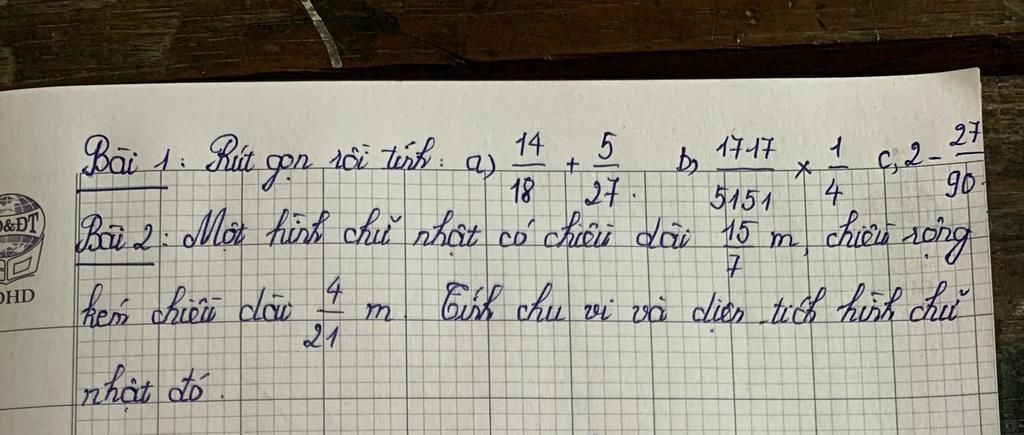 Bài 1: Rút gọn rồi tính: a) 14/18 + 5/27. b) 1717/5151 x 1/4 c, 2 - 27/90.
Bài 2: Một hình chữ nhật có chiều dài 15/7 m, chiều rộng
kém chiều dài 4/21 m. Tính chu vi và diện tích hình chữ
nhật đó.
&ĐT
DHD